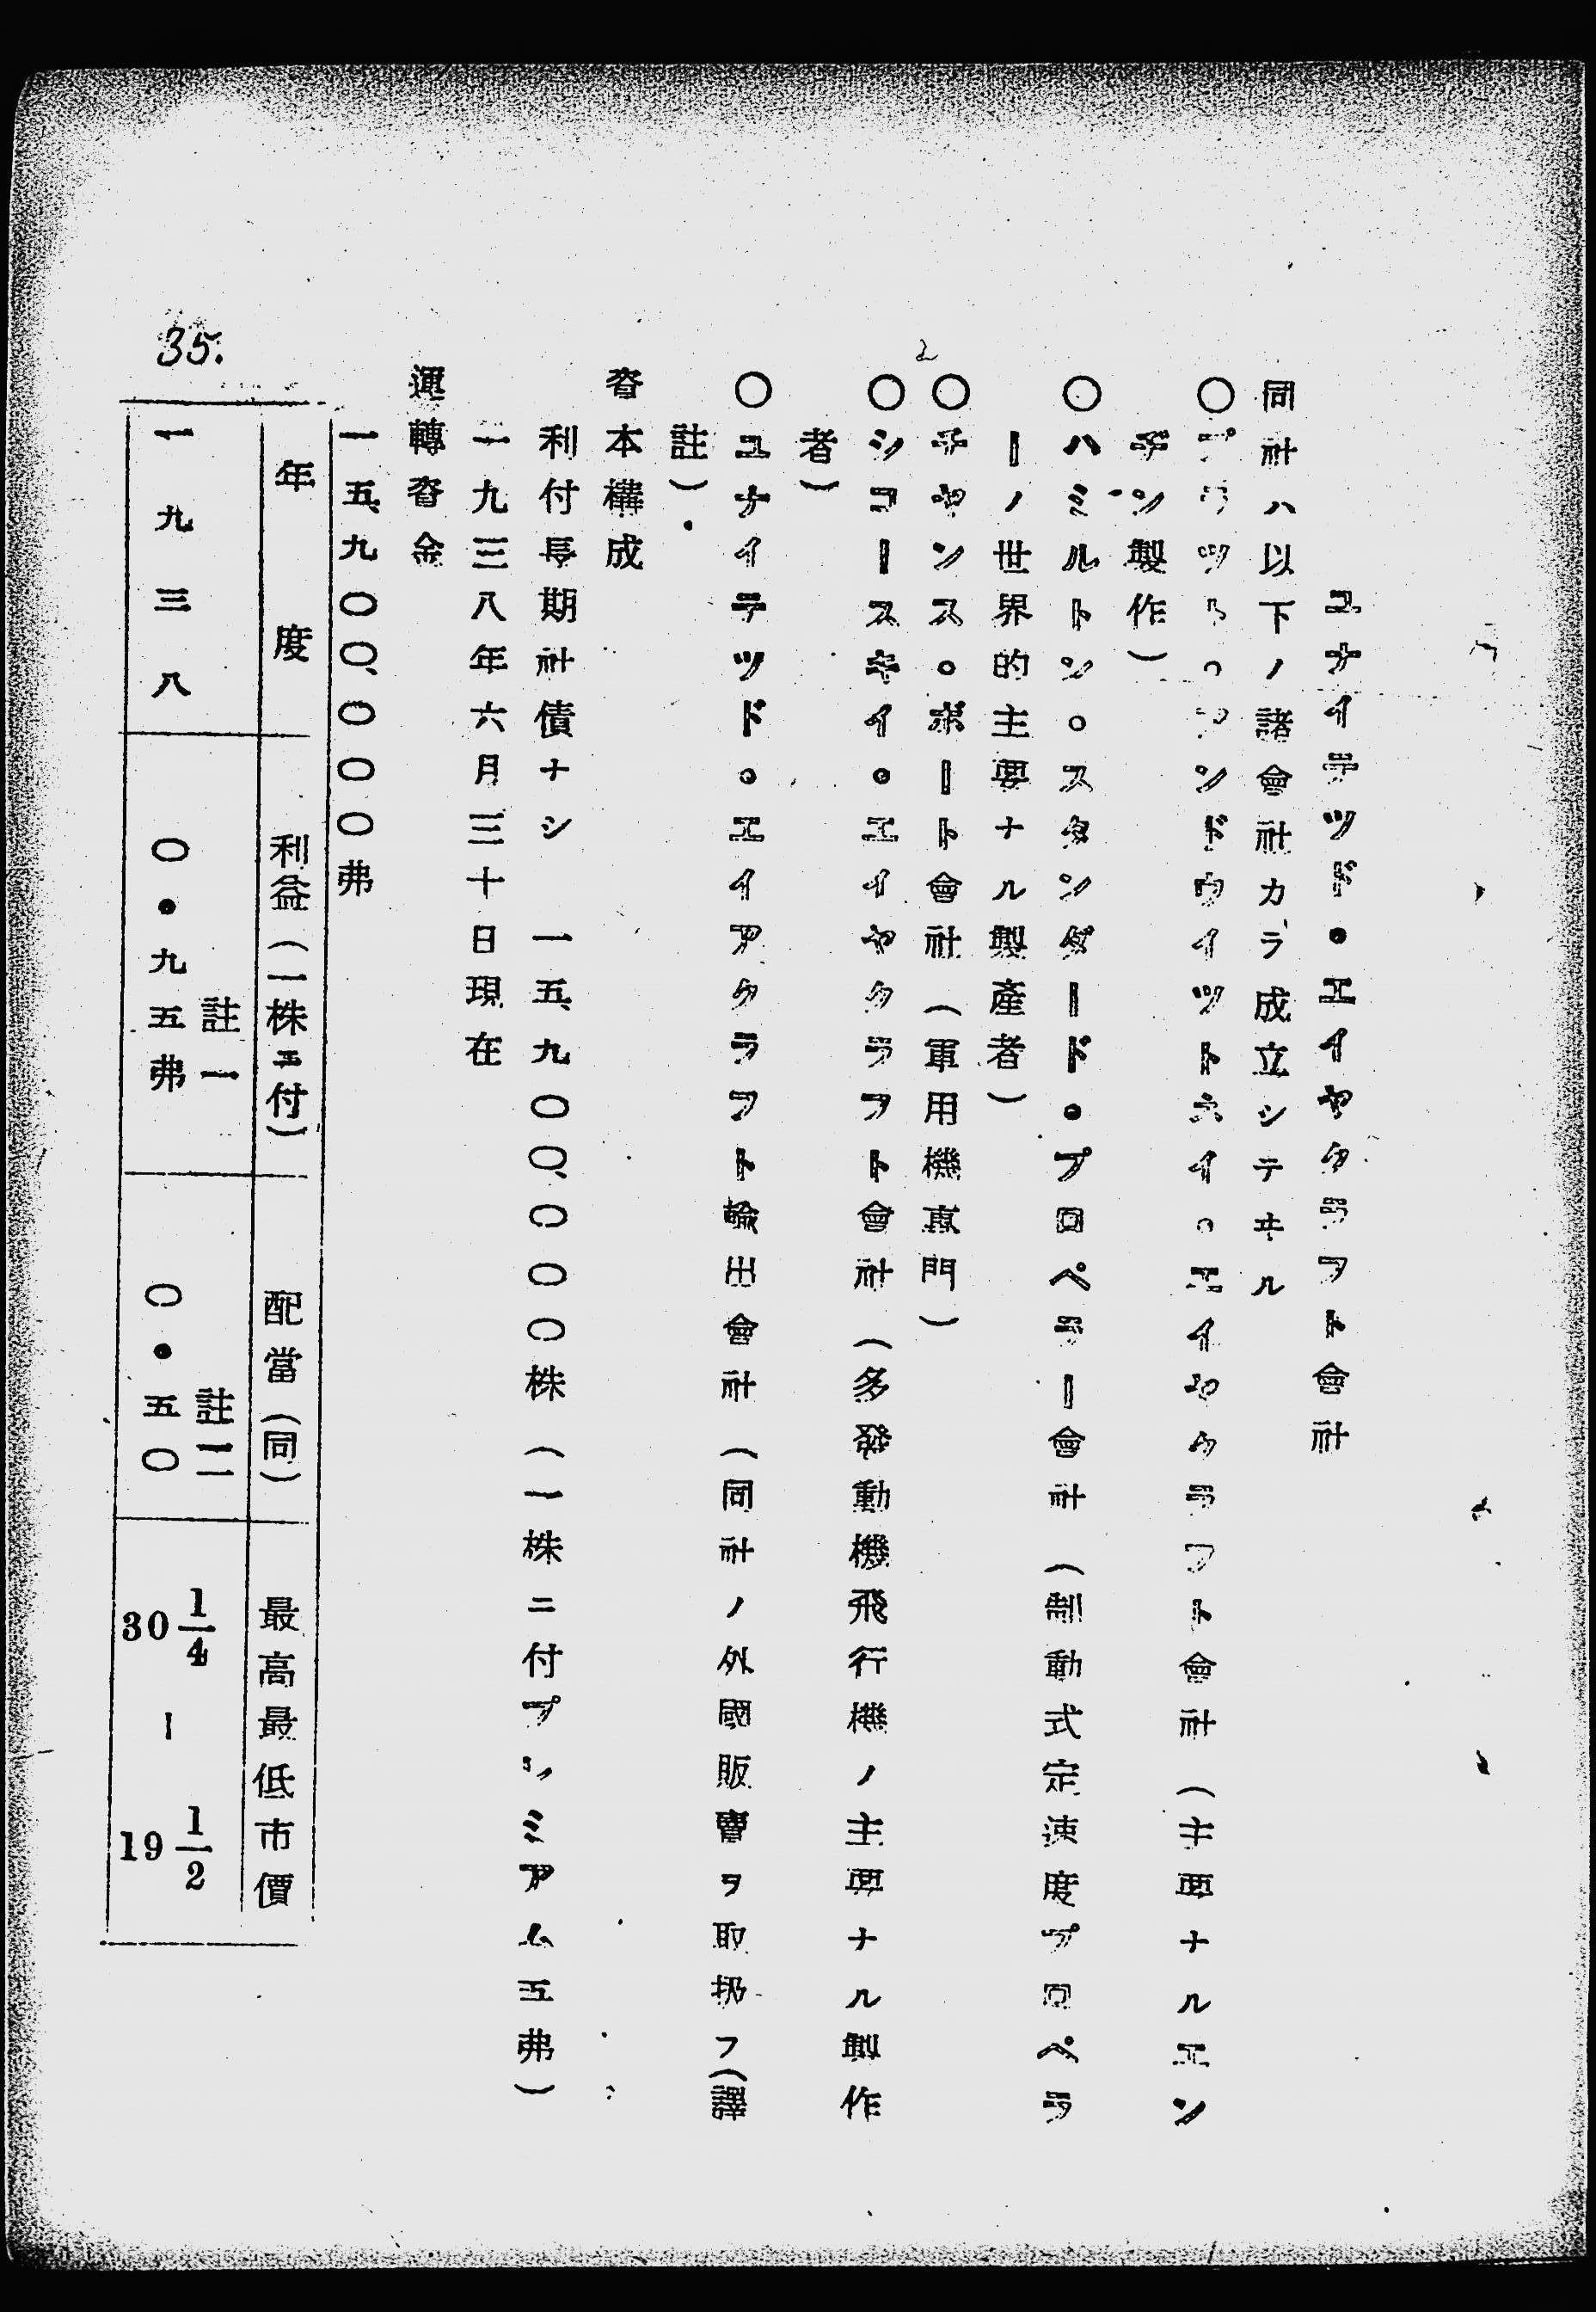 ユナイテツド・エイヤクラフト會社
同社ハ以下ノ諸會社カラ成立シテヰル
〇プラツト。アンドウイツトネイ。エイヤクラフト會社(主要ナルエン
ヂン製作)
〇ハミルトン。スタンダード・プロペラー會社(制動式定速度プロペラ
ーノ世界的主要ナル製產者)
2
〇チヤンス。ボート會社(軍用機專門)
〇シコースキイ・エイヤクラフト會社(多發動機飛行機ノ主要ナル製作
者)
〇ユナイテツド・エイアクラフト輸出會社(同社ノ外國販賣ヲ取扱フ(譯
註)
資本構成
利付長期社債ナシ 一五、九〇〇、〇〇〇株(一株ニ付プレミアム五弗)
一九三八年六月三十日現在
運轉資金
一五、九〇〇、〇〇〇弗
年度 利益(一株ニ付) 配當(同) 最高最低市價
註一 註二
一九三八 〇・九五弗 〇・五〇 30 1/4 ー 19 1/2
35.